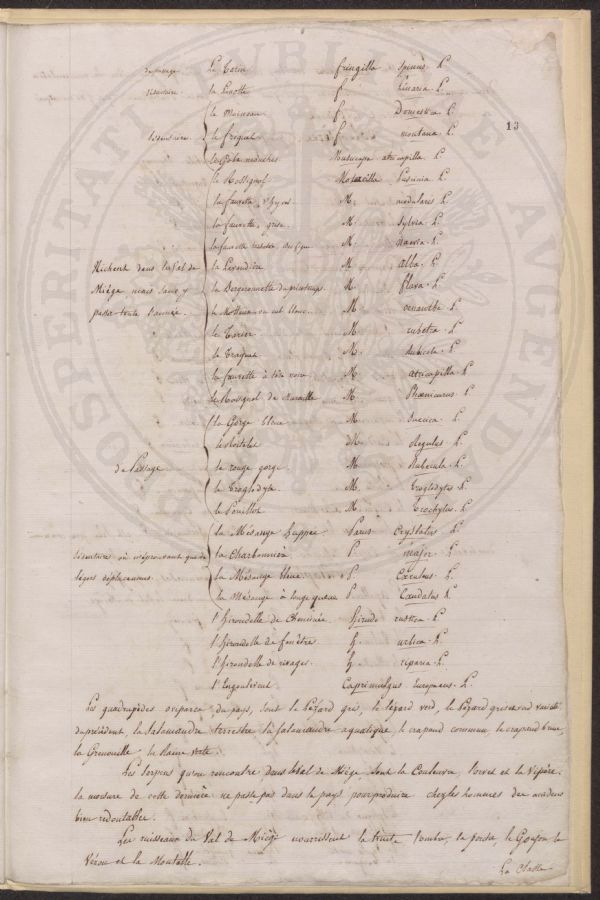 PROSPERITATI PUBLICAE AUGENDAE
13
de passage le Tarin fringilla spinus L.
sédentaire la Linotte f. Linaria L.
le Moineau f. Domestica L.
sédentaire le friquet f. montana L.
le gobe mouches Muscicapa atricapilla L.
le Rossignol Motacilla Luscinia L.
la fauvette d'hyver M. modularis L.
la fauvette grise M. Sylvia L.
la fauvette M. naevia L.
Nichent dans le Val de la Lavandière M. alba L.
Miége mais sans y la Bergeronnette du printemps M. flava L.
passer toute l'année. le Motteux ou cul blanc M. oenanthe L.
le Tarier M. rubetra L.
le Traquet M. Rubicola L.
la fauvette à tête noire M. atricapilla L.
le Rossignol de Muraille M. Phoenicurus L.
la Gorge bleue M. Suecica L.
le Roitelet M. Regulus L.
de Passage le rouge gorge M. Rubecula L.
le Troglodyte M. Troglodytes L.
le Pouillot M. Trochylus L.
la Mésange huppée Parus Crystatus L.
sédentaires ou n'éprouvant que de la Charbonnière P. major L.
légers déplacemens. la Mésange bleue P. Cæruleus L.
la Mésange à longe queue P. Caudatus L.
l'hirondelle de Cheminée hirundo rustica L.
l'hirondelle de fenêtre h. urbica L.
l'hirondelle de rivages h. riparia L.
l'Engoulevent Caprimulgus Europæus L.
Les quadrupèdes ovipares du pays, sont le Lézard gris, le lézard verd, le Lézard gris verd variété
du précédent, la salamandre terrestre la salamandre aquatique, le crapaud commun, le crapaud brun,
la Grenouille, la Raine verte.
Les serpens qu'on rencontre dans le Val de Miége, sont la Couleuvre, l'orvet et la Vipère.
la morsure de cette dernière ne passe pas dans le pays pour produire chez les hommes des accidens
bien redoutables.
Les ruisseaux du Val de Miége nourrissent la truite, l'ombre, la perche, le Goujon, le
Véron et la Moutelle.
La Chasse